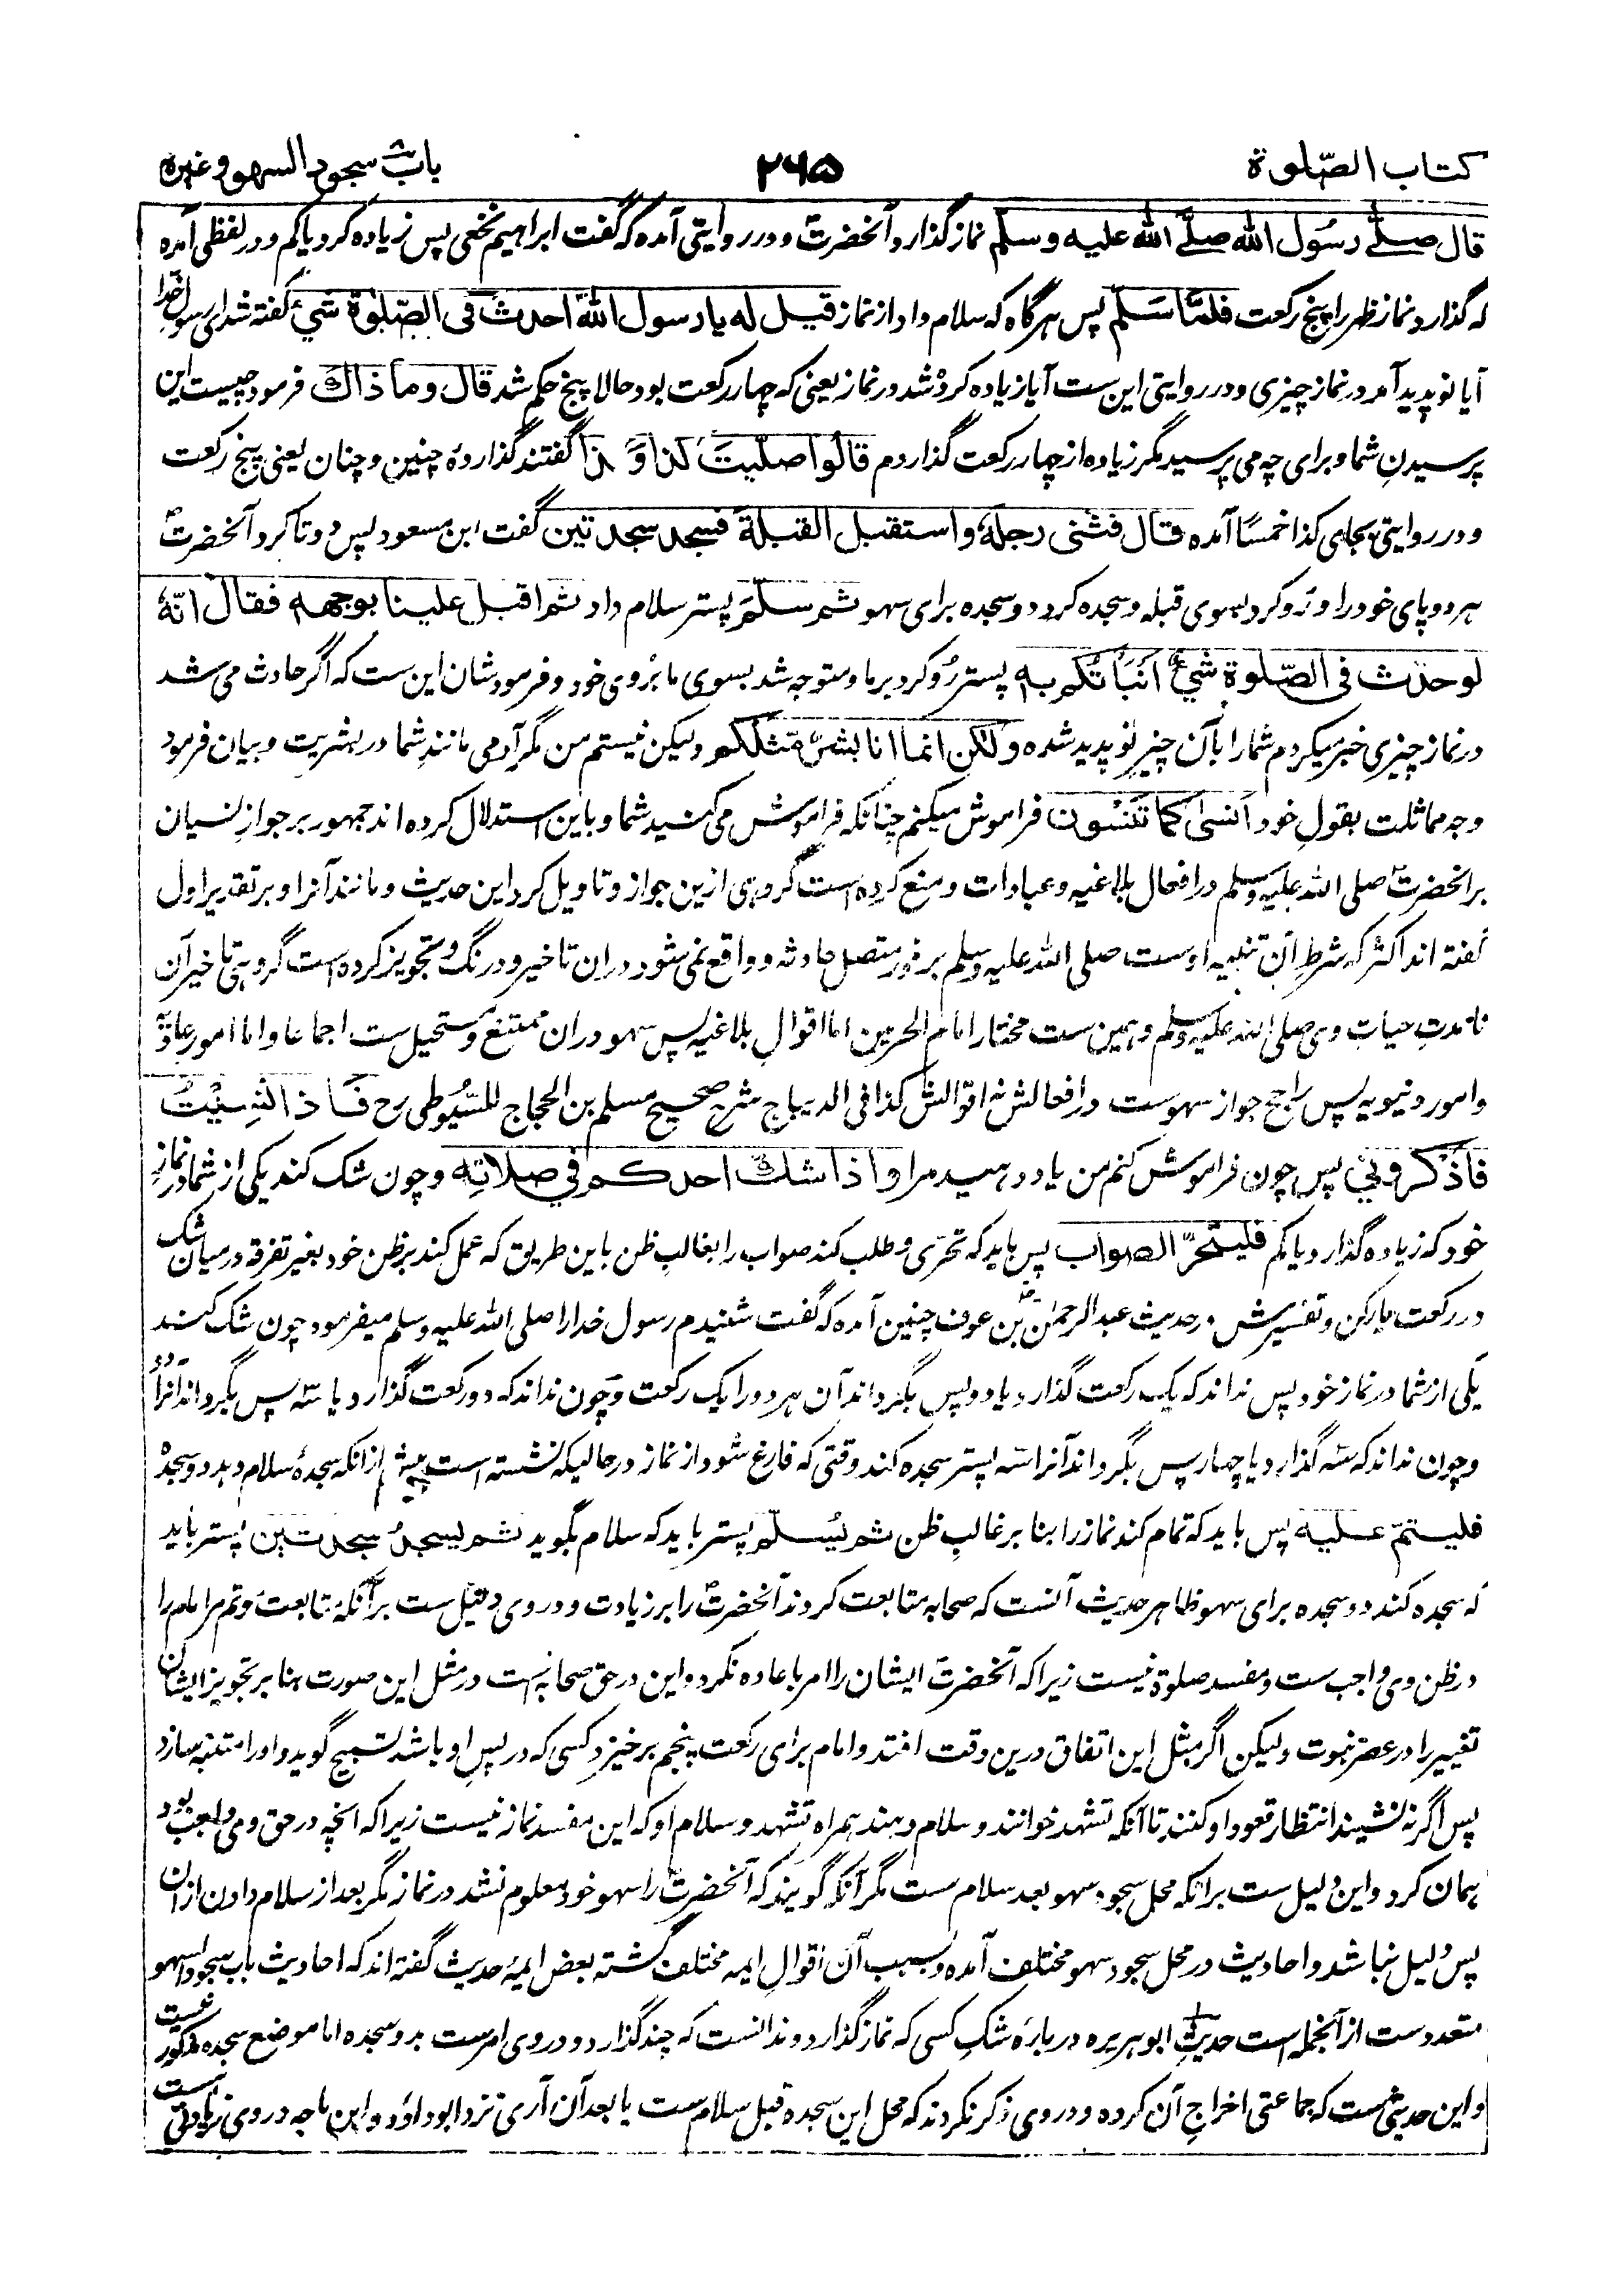 كتاب الصّلوة
۲۶۵
باب سجود السهو وغيره
قال صلّے رسول الله صلّے الله عليه وسلم نماز گذارد آنحضرتؐ و در روایتی آمده که گفت ابراهیم نخعی پس زیاده کرد یا کم و در لفظی آمده
که گذارد نماز ظهر را پنج رکعت فلمّا سَلّم پس هرگاه که سلام داد از نماز قيل له يا رسول الله احدث فى الصّلوة شيءٌ گفته شد ای رسول خدا
آیا نو پدید آمد در نماز چیزی و در روایتی این ست آیا زیاده کرده شد در نماز یعنی که چهار رکعت بود حالا پنج حکم شد قال وما ذاك فرمود چیست این
پرسیدنِ شما و برای چه می پرسید مگر زیاده از چهار رکعت گذاردم قالوا صلّيتَ كذا وَّ كذا گفتند گذارده‌ٔ چنین و چنان یعنی پنج رکعت
و در روایتی بجای کذا خمسًا آمده قال فثنى رجلهُ واستقبل القبلةَ فسجد سجدتين گفت ابن مسعود پس دوتا کرد آنحضرتؐ
هر دو پای خود را و رو کرد بسوی قبله و سجده کرد دو سجده برای سهو ثم سلّمَ پستر سلام داد ثم اقبل علينا بوجهه فقال انّهٗ
لو حدث فى الصّلوة شيءٌ انبأتكم به پستر رُو کرد بر ما و متوجه شد بسوی ما بُروی خود و فرمود شان این ست که اگر حادث می شد
در نماز چیزی خبر میکردم شما را بآن چیز نو پدید شده ولٰكن انما انا بشرٌ مّثلكم ولیکن نیستم من مگر آدمی مانندِ شما در بشریت و بیان فرمود
وجه مماثلت بقولِ خود انسىٰ كما تنسون فراموش میکنم چنانکه فراموش می کنید شما و باین استدلال کرده اند جمهور بر جوازِ نسیان
بر آنحضرت صلی الله علیه وسلم در افعال بلاغیه و عبادات و منع کرده است گروهی ازین جواز و تاویل کرد این حدیث و مانند آنرا و بر تقدیر اول
گفته اند اکثر که شرطِ آن تنبیه اوست صلی الله علیه وسلم بر فور متصل حادثه و واقع نمی شود دران تاخیر و درنگ و تجویز کرده است گروهی تاخیر آن
تا مدتِ حیات وی صلی الله علیه وسلم و همین ست مختار امام الحرمین اما اقوالِ بلاغیه پس سهو دران ممتنع و مستحیل ست اجماعا و اما امور عادیّه
و امور دنیویه پس راجح جواز سهوست در افعالش نه اقوالش کذا فی الدیباج شرح صحیح مسلم بن الحجاج للسّیُوطی رح فاذا نسِيْتُ
فاذكّروني پس چون فراموش کنم من یاد دهید مرا واذا شكّ احدكم في صلاتِه و چون شک کند یکی از شما در نمازِ
خود که زیاده گذارد یا کم فليتحرَّ الصواب پس باید که تحرّی و طلب کند صواب را بغالب ظن باین طریق که عمل کند بر ظن خود بغیر تفرقه درمیان شک
در رکعت یا رکن و تفسیرش در حدیث عبد الرحمٰن بن عوف چنین آمده که گفت شنیدم رسول خدا را صلی الله علیه وسلم میفرمود چون شک کند
یکی از شما در نماز خود پس نداند که یک رکعت گذارد یا دو پس بگرداند آن هر دو را یک رکعت و چون نداند که دو رکعت گذارد یا سه پس بگرداند آنرا دو
و چون نداند که سه گذارد یا چهار پس بگرداند آنرا سه پستر سجده کند وقتی که فارغ شود از نماز در حالیکه نشسته است پیش از آنکه سجدهٔ سلام دهد دو سجده
فليتمّ عليه پس باید که تمام کند نماز را بنا بر غالبِ ظن ثم ليُسلّم پستر باید که سلام بگوید ثم يسجدُ سجدتين پستر باید
که سجده کند دو سجده برای سهو ظاهر حدیث آنست که صحابه متابعت کردند آنحضرتؐ را بر زیادت و در وی دلیل ست بر آنکه متابعت موتم مر امام را
در ظن وی واجب ست و مفسد صلوة نیست زیرا که آنحضرتؐ ایشان را امر باعاده نکرد و این در حق صحابه است در مثل این صورت بنا بر تجویز ایشان
تغییر را در عصرِ نبوت ولیکن اگر مثل این اتفاق درین وقت افتد و امام برای رکعت پنجم برخیزد کسی که در پسِ او باشد تسبیح گوید و او را متنبه سازد
پس اگر نه نشیند انتظار قعود او کنند تا آنکه تشهد خوانند و سلام دهند همراه تشهد و سلام او که این مفسد نماز نیست زیرا که آنچه در حق وی واجب بود
همان کرد و این دلیل ست بر آنکه محل سجود سهو بعد سلام ست مگر آنکه گویند که آنحضرتؐ را سهو خود معلوم نشد در نماز مگر بعد از سلام دادن از آن
پس دلیل نباشد و احادیث در محل سجود سهو مختلف آمده و بسبب آن اقوالِ ایمه مختلف گشته بعض ایمهٔ حدیث گفته اند که احادیث باب سجود السهو
متعددست از آنجمله است حدیثِ ابو هریره دربارهٔ شکِ کسی که نماز گذارد و ندانست که چند گذارد و در وی امرست بدو سجده اما موضع سجده مذکور نیست
و این حدیثی ست که جماعتی اخراجِ آن کرده و در وی ذکر نکردند که محل این سجده قبل سلام ست یا بعد آن آری نزد ابوداؤد و ابن ماجه در وی زیادتی ست